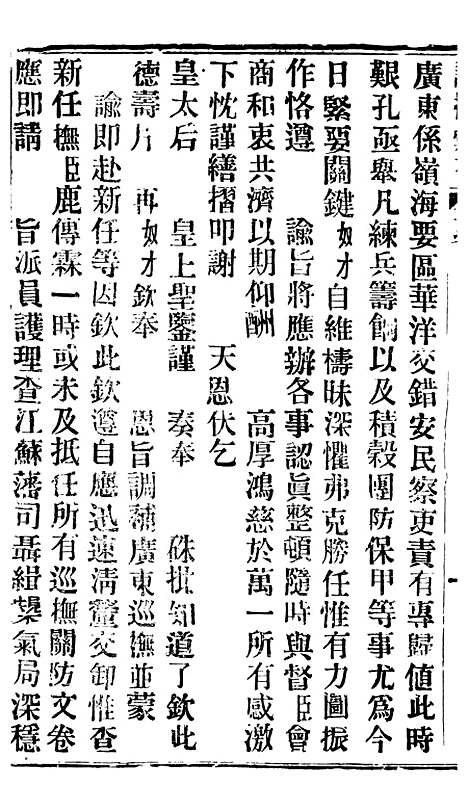 廣東係嶺海要區華洋交錯安民察吏責有專歸値此時
艱孔亟舉凡練兵籌餉以及積榖團防保甲等事尤爲今
日緊要關鍵奴才自維檮昧深懼弗克勝任惟有力圖振
作恪遵　諭旨將應辦各事認眞整頓隨時與督臣會
商和衷共濟以期仰酬　高厚鴻慈於萬一所有感激
下忱謹繕摺叩謝　天恩伏乞
皇太后　皇上聖鑒謹　奏奉　硃批知道了欽此
德壽片　再奴才欽奉　恩旨調補廣東巡撫並蒙
諭即赴新任等因欽此欽遵自應迅速清釐交卸惟查
新任撫臣鹿傳霖一時或未及抵任所有巡撫關防文卷
應即請　旨派員護理查江蘇藩司聶緝椝氣局深穩